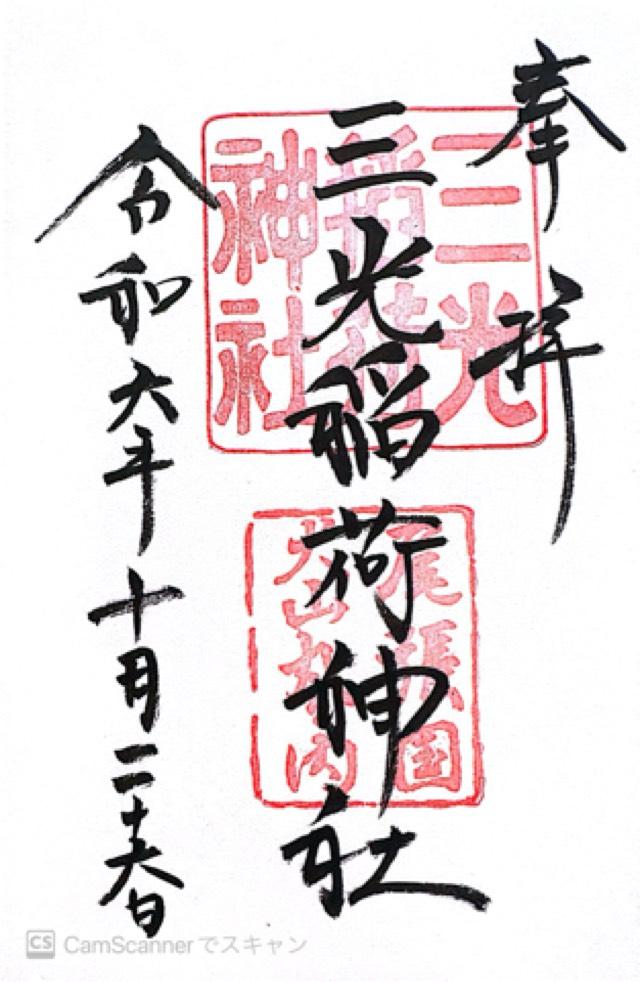 奉拝
三光稲荷神社
令和六年十月二十六日
三光
稲荷
神社
尾張国
犬山城内
CS CamScannerでスキャン